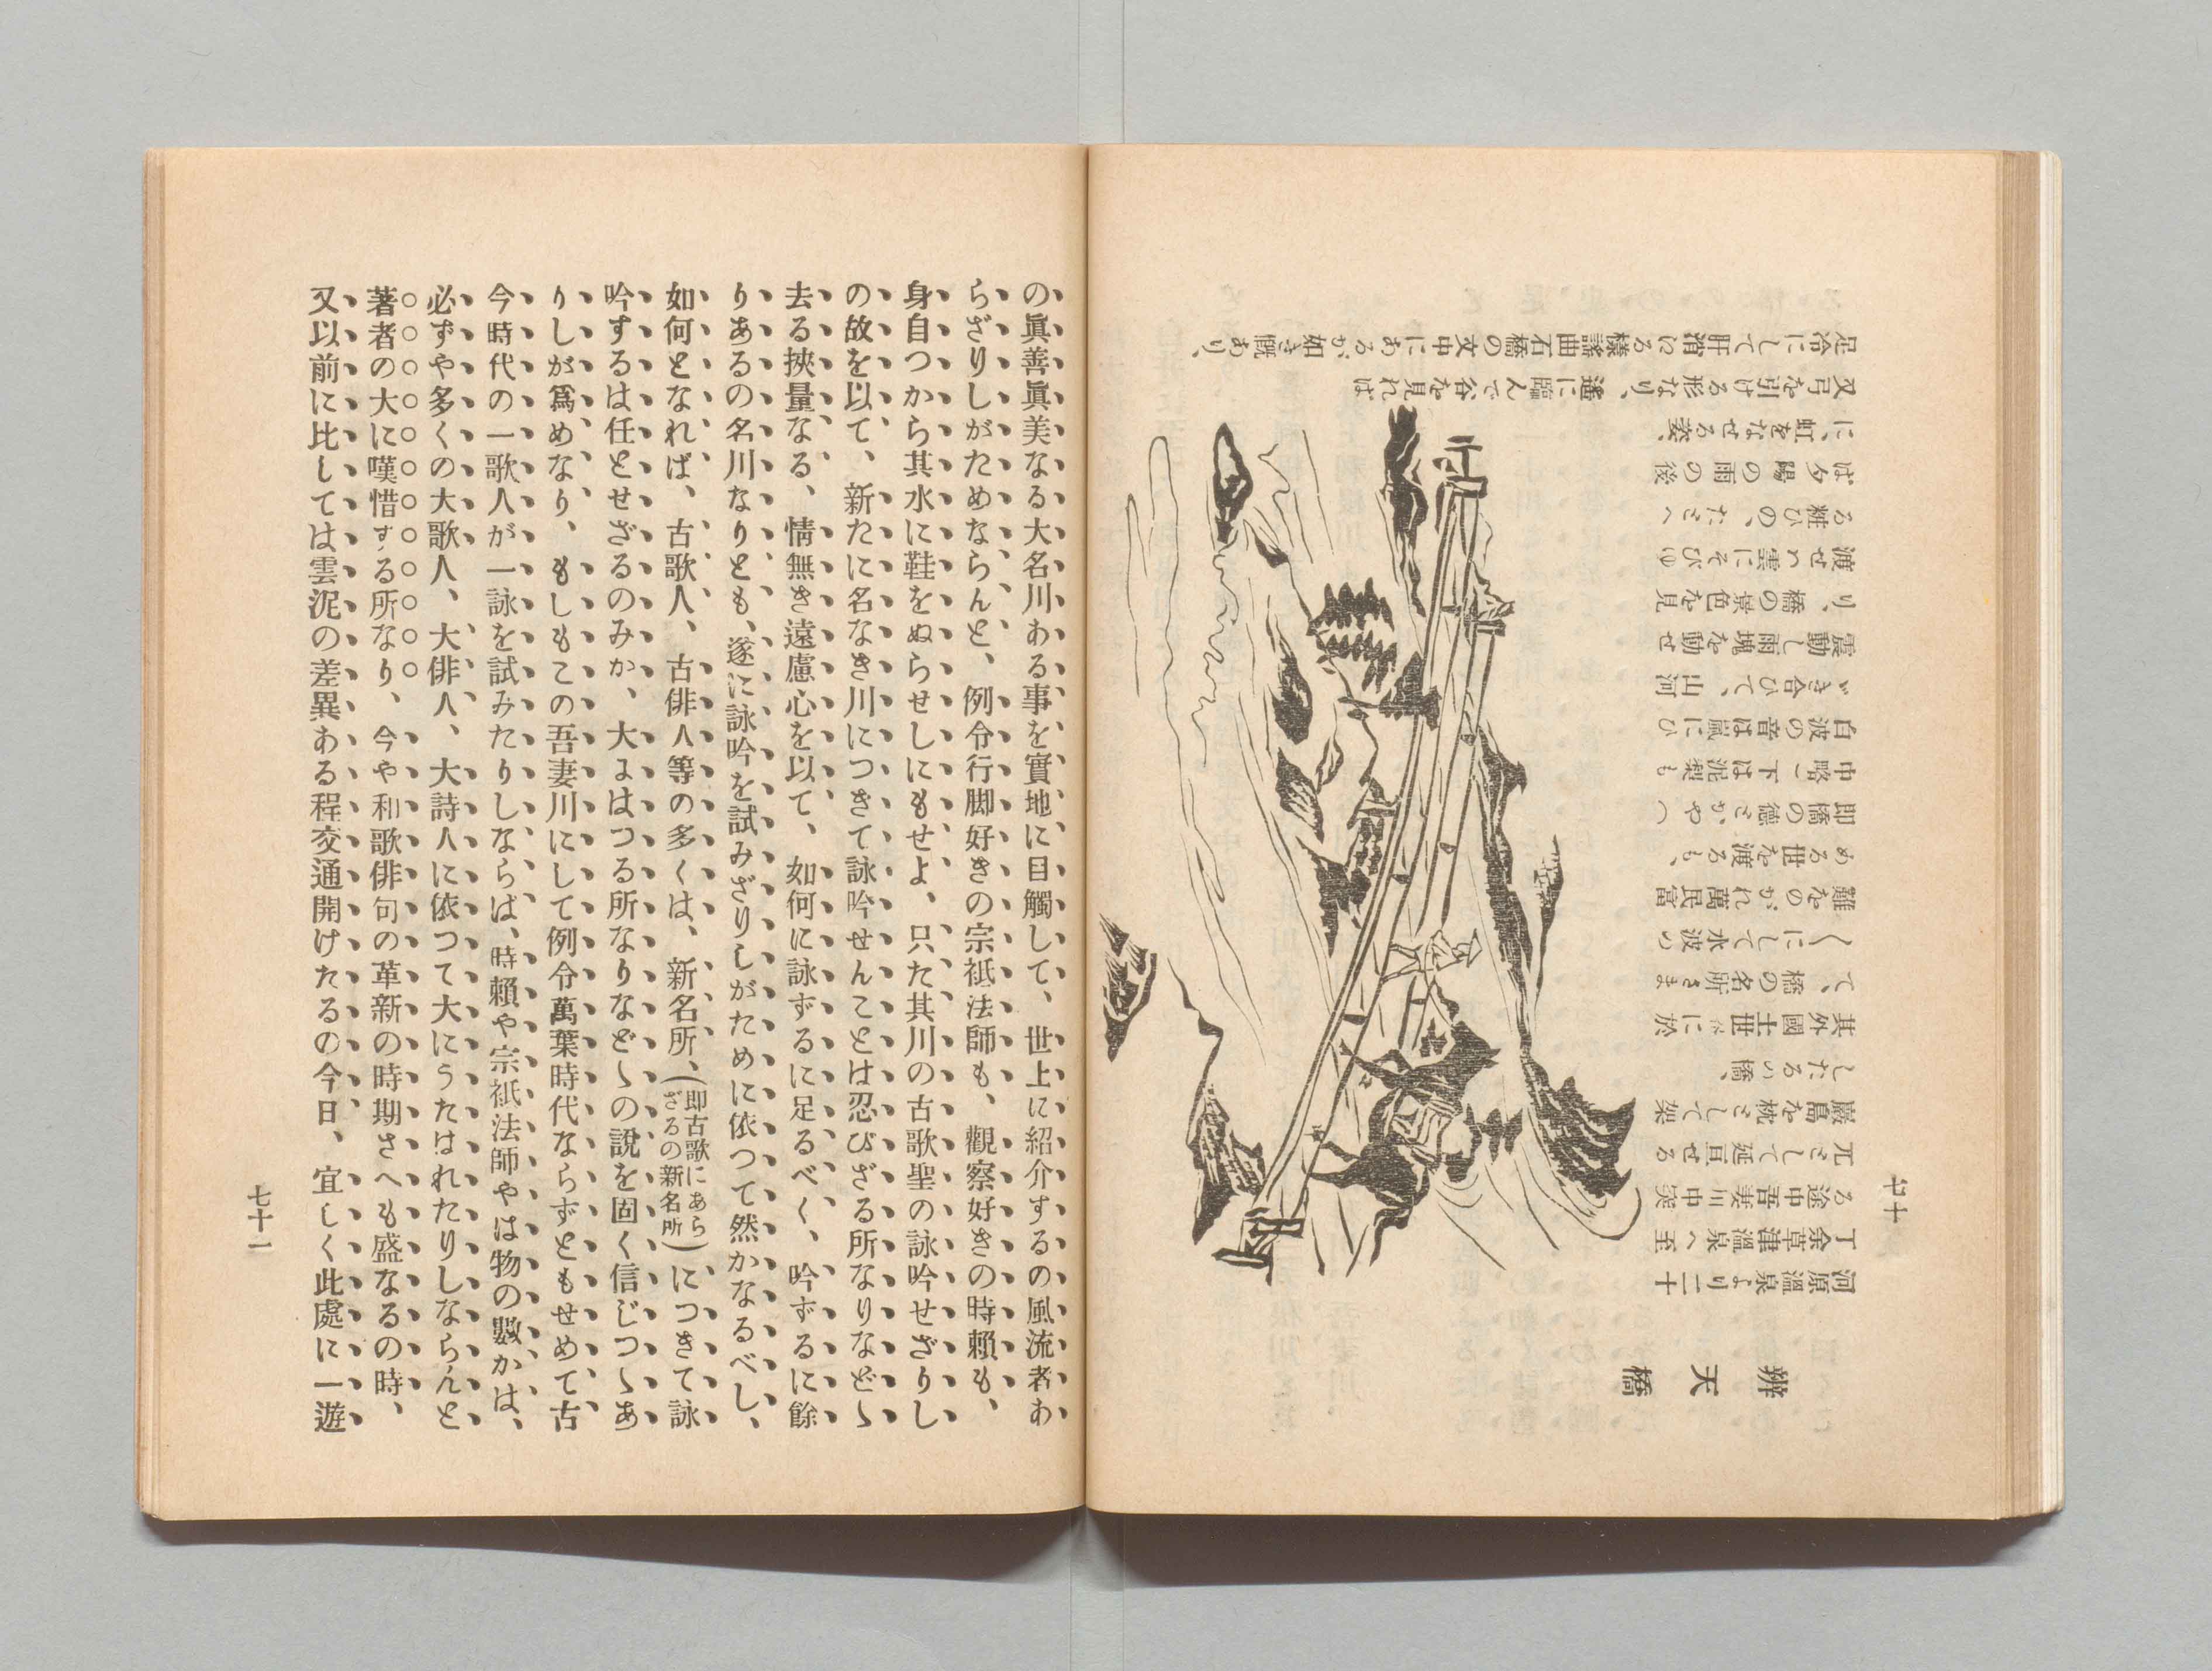 辨天橋
河原溫泉より二十
丁余草津溫泉へ至
る途中吾妻川中突
兀として延亘せる
巖島を枕として架
したるの橋、
其外國土世界に於
て、橋の名所さま
〲にして水波の
難をのがれ萬民富
める世を渡るも、
即橋の德とかや（
中略）下は泥梨も
白波の音は嵐にひ
ゞき合ひて、山河
震動し雨塊を動せ
り、橋の景色を見
渡せば雲にそびゆ
る粧ひの、たとへ
ば夕陽の雨の後
に、虹をなせる姿、
又弓を引ける形なり、遙に臨んで谷を見れば
足冷にして肝消ける樣謠曲石橋の文中にあるが如き慨あり、
七十
の眞善眞美なる大名川ある事を實地に目觸して、世上に紹介するの風流者あ
らざりしがためならんと、例令行脚好きの宗祇法師も、觀察好きの時賴も、
身自つから其水に鞋をぬらせしにもせよ、只た其川の古歌聖の詠吟せざりし
の故を以て、新たに名なき川につきて詠吟せんことは忍びざる所なりなど〻
去る挾量なる、情無き遠慮心を以て、如何に詠ずるに足るべく、吟ずるに餘
りあるの名川なりとも、遂に詠吟を試みざりしがために依つて然かなるべし、
如何となれば、古歌人、古俳人等の多くは、新名所、(即古歌にあらざるの新名所)につきて詠
吟するは任とせざるのみか、大よはつる所なりなど〻の說を固く信じつ〻あ
りしが爲めなり、もしもこの吾妻川にして例令萬葉時代ならずともせめて古
今時代の一歌人が一詠を試みたりしならば、時賴や宗祇法師やは物の數かは、
必ずや多くの大歌人、大俳人、大詩人に依つて大にうたはれたりしならんと
著者の大に嘆惜する所なり、今や和歌俳句の革新の時期さへも盛なるの時、
又以前に比しては雲泥の差異ある程交通開けたるの今日、宜しく此處に一遊
七十一